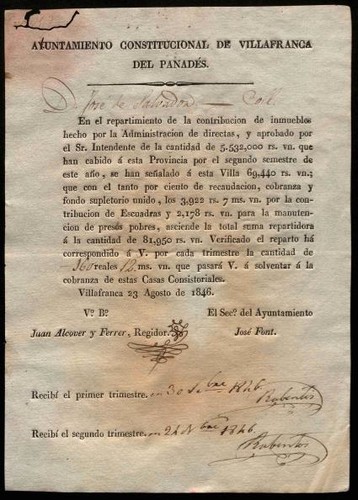 AYUNTAMIENTO CONSTITUCIONAL DE VILLAFRANCA
DEL PANADÉS.
D. José de Salvador Coll
En el repartimiento de la contribucion de inmuebles
hecho por la Administracion de directas, y aprobado por
el Sr. Intendente de la cantidad de 5.532,000 rs. vn. que
han cabido á esta Provincia por el segundo semestre de
este año, se han señalado á esta Villa 69,440 rs. vn.;
que con el tanto por ciento de recaudacion, cobranza y
fondo supletorio unido, los 3,922 rs. 7 ms. vn. por la con-
tribucion de Escuadras y 2,178 rs. vn. para la manuten-
cion de presos pobres, asciende la total suma repartidora
á la cantidad de 81,950 rs. vn. Verificado el reparto há
correspondido á V. por cada trimestre la cantidad de
reales ms. vn. que pasará V. á solventar á la
cobranza de estas Casas Consistoriales.
Villafranca 23 Agosto de 1846.
V.º B.º El Sec.º del Ayuntamiento
Juan Alcover y Ferrer, Regidor. José Font.
Recibí el primer trimestre. en 30 bre 1846
Recibí el segundo trimestre. en 24 bre 1846